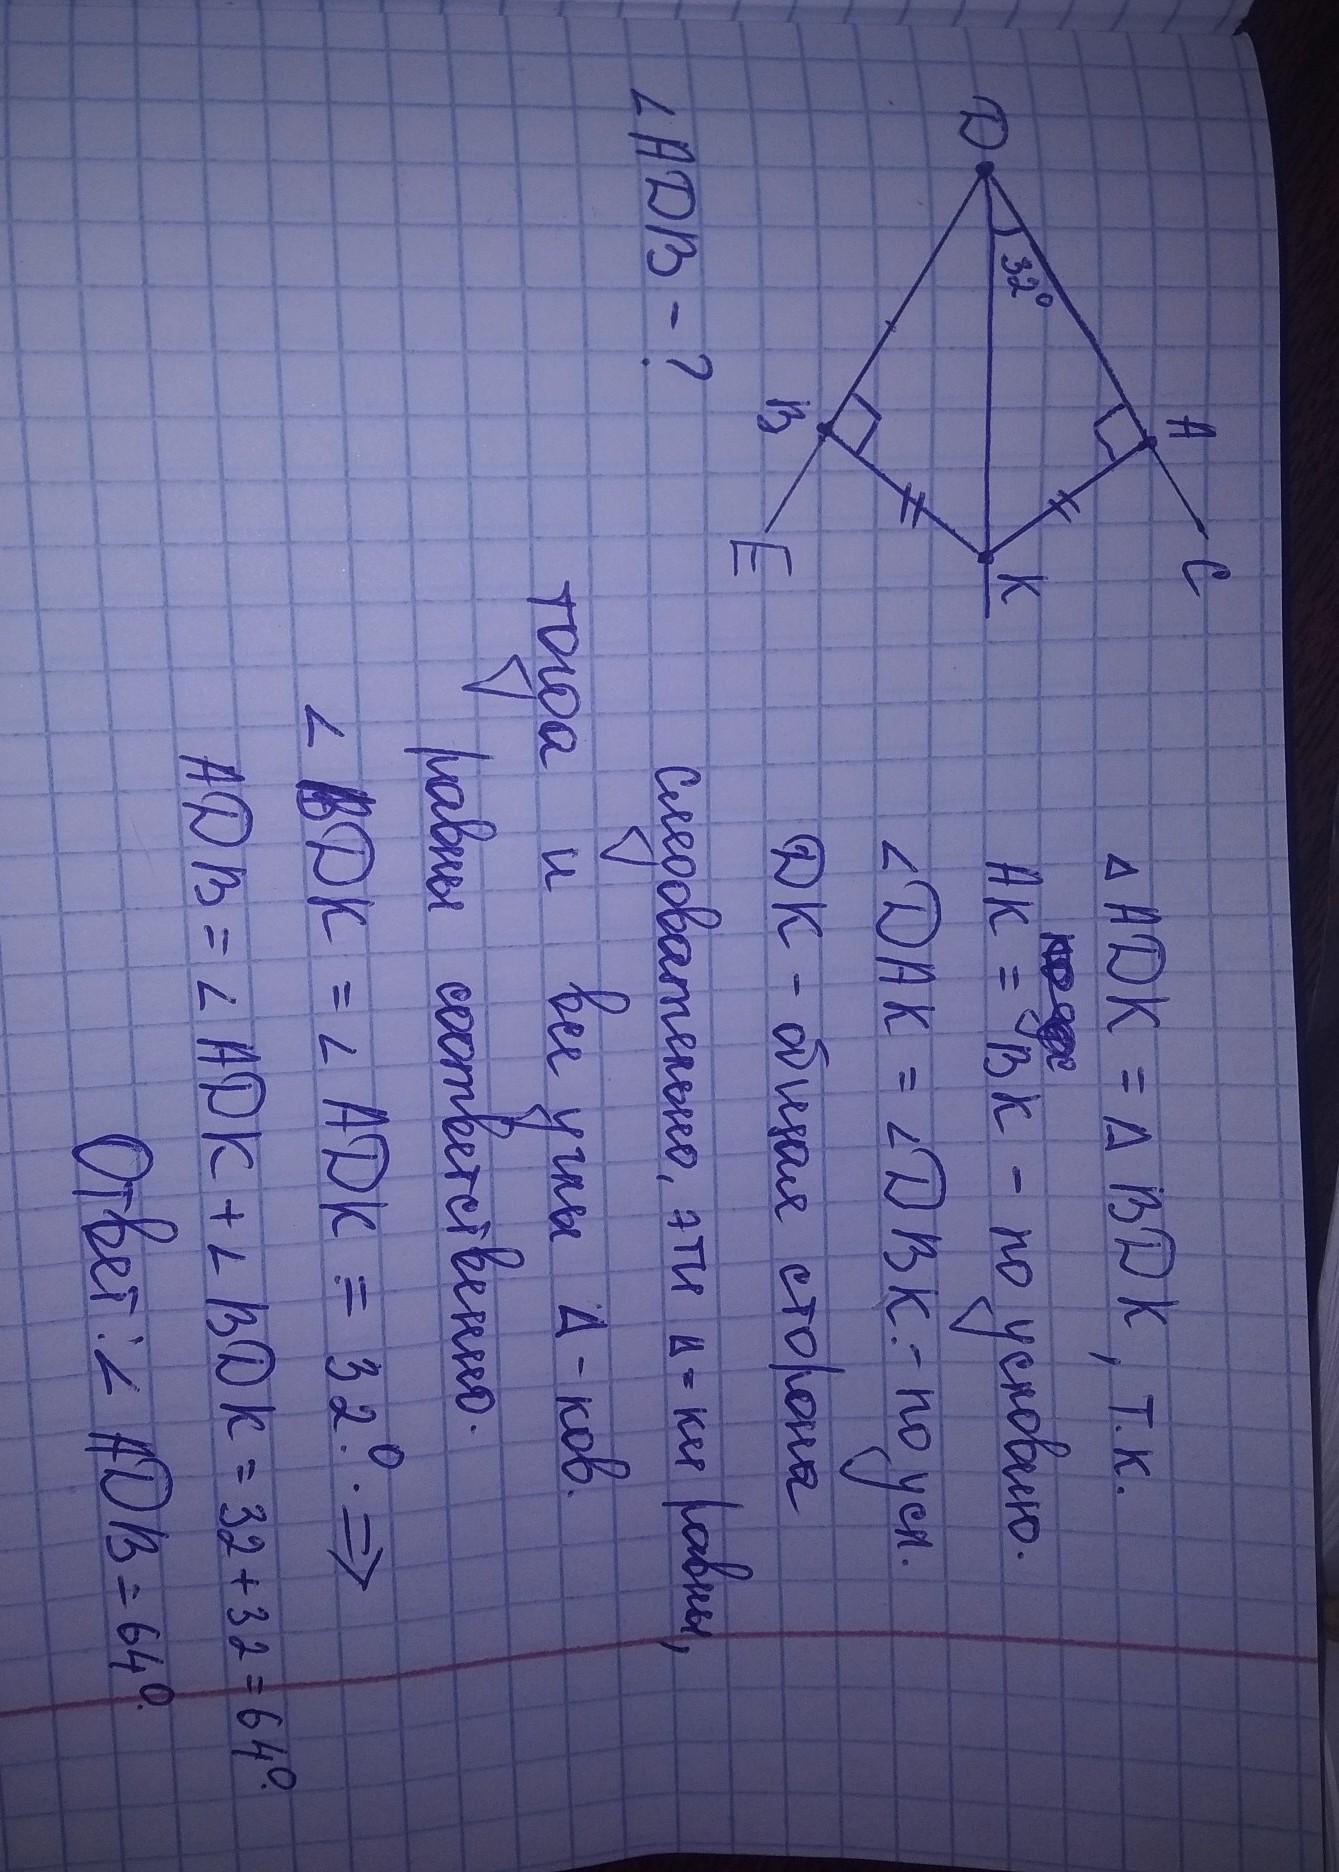 D
32°
A
C
K
B
E
∠ADB - ?
△ADK = △BDK, т.к.
AK = BK - по условию.
∠DAK = ∠DBK. - по усл.
DK - общая сторона
Следовательно, эти △-ки равны,
тогда и все углы △-ков.
равны соответственно.
∠BDK = ∠ADK = 32°. ⇒
ADB = ∠ADK + ∠BDK = 32 + 32 = 64°.
Ответ: ∠ADB = 64°.